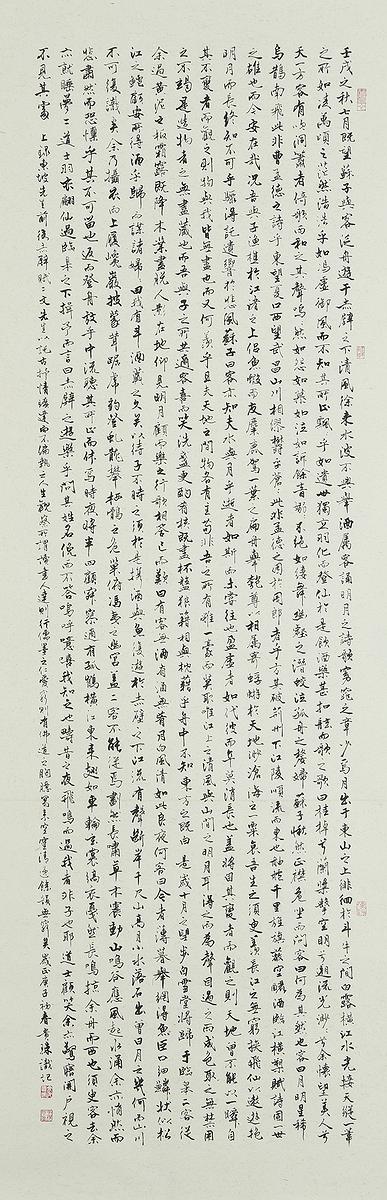 壬戌之秋七月既望蘇子與客泛舟遊于赤壁之下清風徐來水波不興舉酒屬客誦明月之詩歌窈窕之章少焉月出于東山之上徘徊於斗牛之間白露橫江水光接天縱一葦
之所如凌萬頃之茫然浩浩乎如馮虛御風而不知其所止飄飄乎如遺世獨立羽化而登仙於是飲酒樂甚扣舷而歌之歌曰桂棹兮蘭槳擊空明兮溯流光渺渺兮余懷望美人兮
天一方客有吹洞簫者倚歌而和之其聲嗚嗚然如怨如慕如泣如訴餘音裊裊不絕如縷舞幽壑之潛蛟泣孤舟之嫠婦蘇子愀然正襟危坐而問客曰何為其然也客曰月明星稀
烏鵲南飛此非曹孟德之詩乎東望夏口西望武昌山川相繆鬱乎蒼蒼此非孟德之困於周郎者乎方其破荊州下江陵順流而東也舳艫千里旌旗蔽空釃酒臨江橫槊賦詩固一世
之雄也而今安在哉況吾與子漁樵於江渚之上侶魚蝦而友麋鹿駕一葉之扁舟舉匏尊以相屬寄蜉蝣於天地渺滄海之一粟哀吾生之須臾羨長江之無窮挾飛仙以遨遊抱
明月而長終知不可乎驟得託遺響於悲風蘇子曰客亦知夫水與月乎逝者如斯而未嘗往也盈虛者如彼而卒莫消長也蓋將自其變者而觀之則天地曾不能以一瞬自
其不變者而觀之則物與我皆無盡也而又何羨乎且夫天地之間物各有主苟非吾之所有雖一毫而莫取唯江上之清風與山間之明月耳得之而為聲目遇之而成色取之無禁用
之不竭是造物者之無盡藏也而吾與子之所共適客喜而笑洗盞更酌肴核既盡杯盤狼籍相與枕藉乎舟中不知東方之既白 是歲十月之望步自雪堂將歸于臨皋二客從
余過黃泥之坂霜露既降木葉盡脫人影在地仰見明月顧而樂之行歌相答已而歎曰有客無酒有酒無肴月白風清如此良夜何客曰今者薄暮舉網得魚巨口細鱗狀似松
江之鱸顧安所得酒乎歸而謀諸婦婦曰我有斗酒藏之久矣以待子不時之須於是攜酒與魚復遊於赤壁之下江流有聲斷岸千尺山高月小水落石出曾日月之幾何而江山
不可復識矣余乃攝衣而上履巉巖披蒙茸踞虎豹登虬龍攀棲鶻之危巢俯馮夷之幽宮蓋二客不能從焉劃然長嘯草木震動山鳴谷應風起水涌余亦悄然而
悲肅然而恐凜乎其不可留也返而登舟放乎中流聽其所止而休焉時夜將半四顧寂寥適有孤鶴橫江東來翅如車輪玄裳縞衣戛然長鳴掠余舟而西也須臾客去余
亦就睡夢二道士羽衣翩仙過臨皋之下揖予而言曰赤壁之遊樂乎問其姓名俛而不答嗚呼噫嘻我知之矣疇昔之夜飛鳴而過我者非子也耶道士顧笑余亦驚寤開戶視之
不見其處 上錄東坡先生前後赤壁賦二文先生以記古抒情